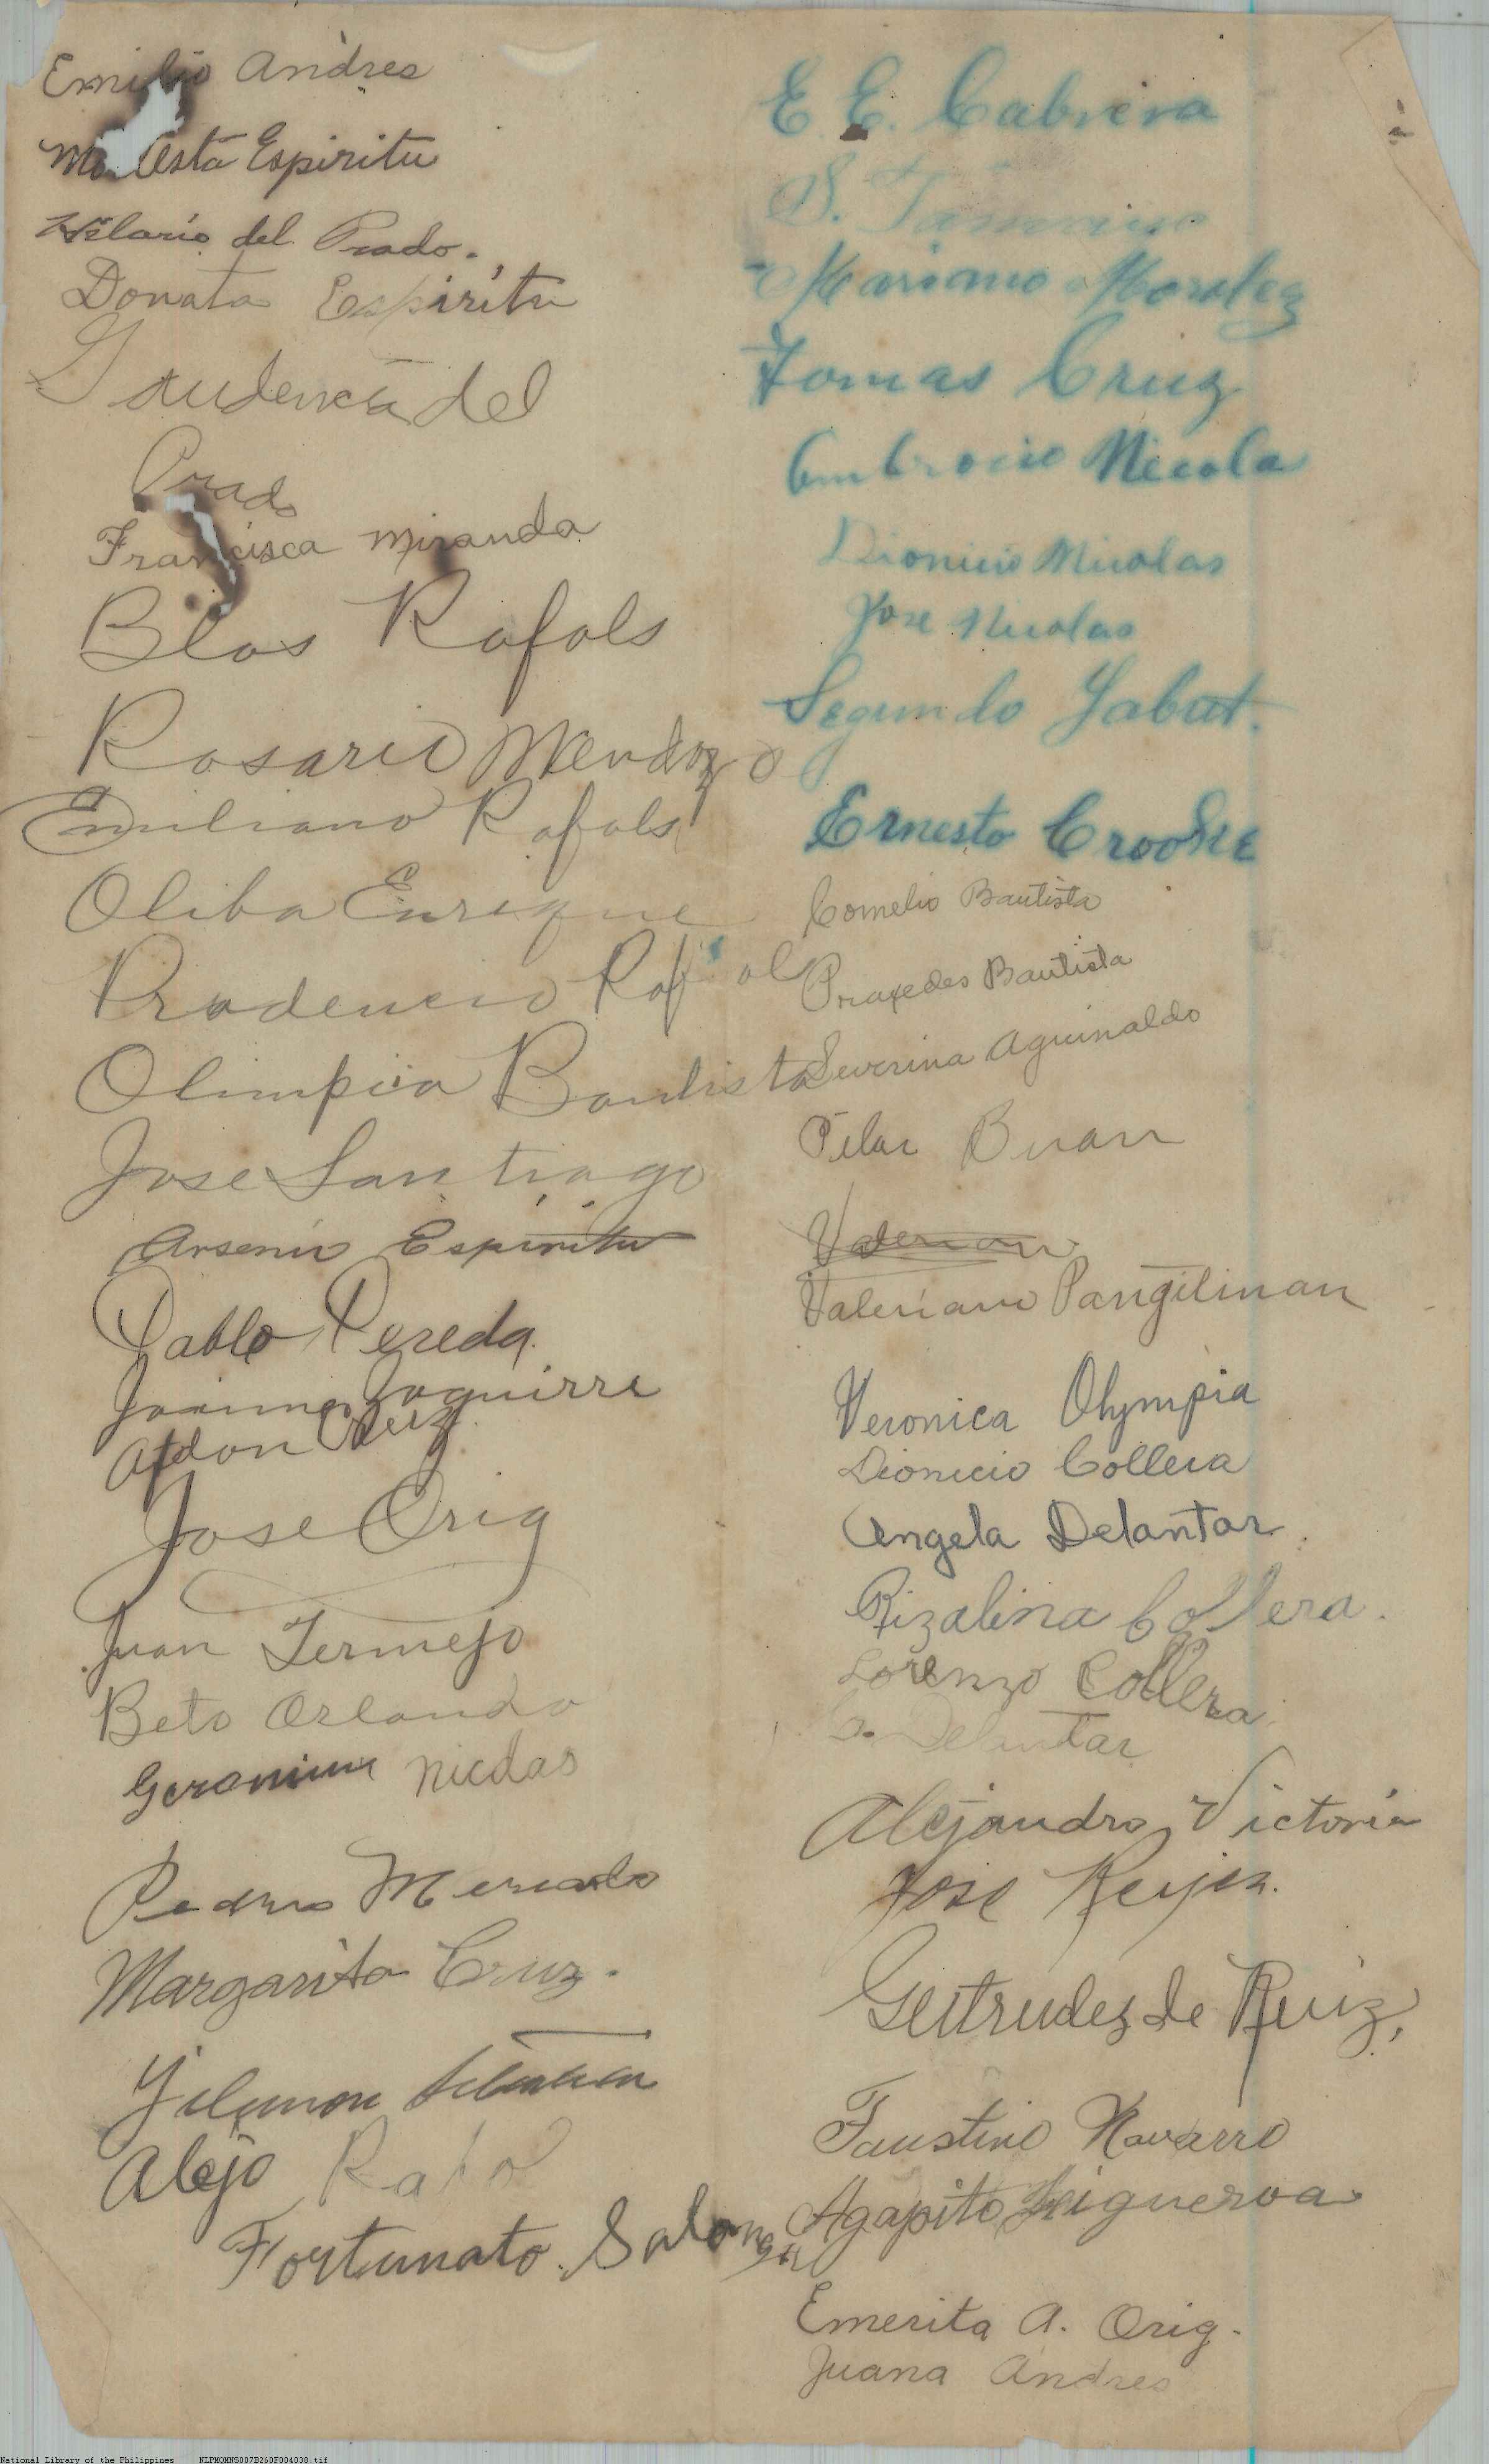 Emilio Andres
Espiritu
Hilario del Prado.
Donata Espiritu
Gaudencia del
Prado
Francisca Miranda
Blas Rafols
Rosario Mendoza
Emiliano Rafols
Oliba Enrique
Prudencio Rafol
Olimpia Bautista
Jose Santiago
Arsenio Espiritu
Pablo Pereda.
Yzaguirre
Cruz
Jose Orig
Juan Termejo
Beto Orlando
Geronima Nicolas
Pedro Mercado
Margarita Cruz.
Alejo
Fortunato Salonga
E. E. Cabrera
S.
Mariano Morales
Tomas Cruz
Ambrocio Nicola
Dionicio Nicolas
Jose Nicolas
Segundo Yabut.
Ernesto Crooke
Cornelio Bautista
Praxedes Bautista
Severina Aguinaldo
Pilar Buan
Valerian
Valeriano Pangilinan
Veronica Olympia
Dionicio Collera
Angela Delantar.
Rizalina Collera.
Lorenzo Collera.
Delantar
Alejandro Victoria
Jose Reyes.
Gertrudez de Ruiz,
Faustino Navarro
Agapito Higueroa
Emerita A. Orig.
Juana Andres
National Library of the Philippines NLPMQMNS007B260F004038.tif